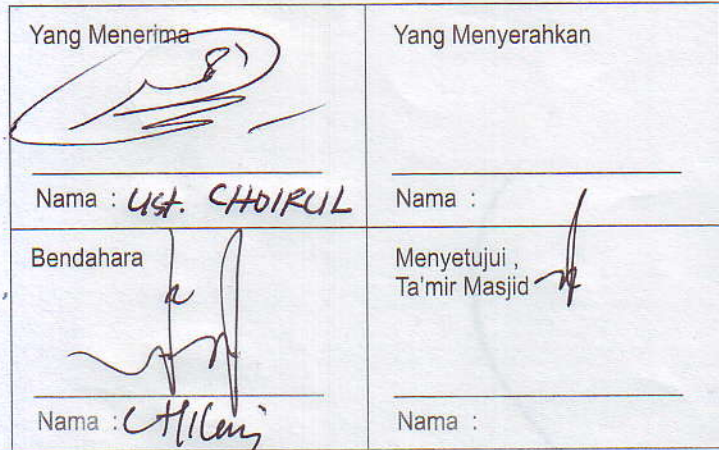 Yang Menerima
Yang Menyerahkan
Nama : Ust. CHOIRUL
Nama :
Bendahara
Menyetujui ,
Ta'mir Masjid
Nama :
Nama :